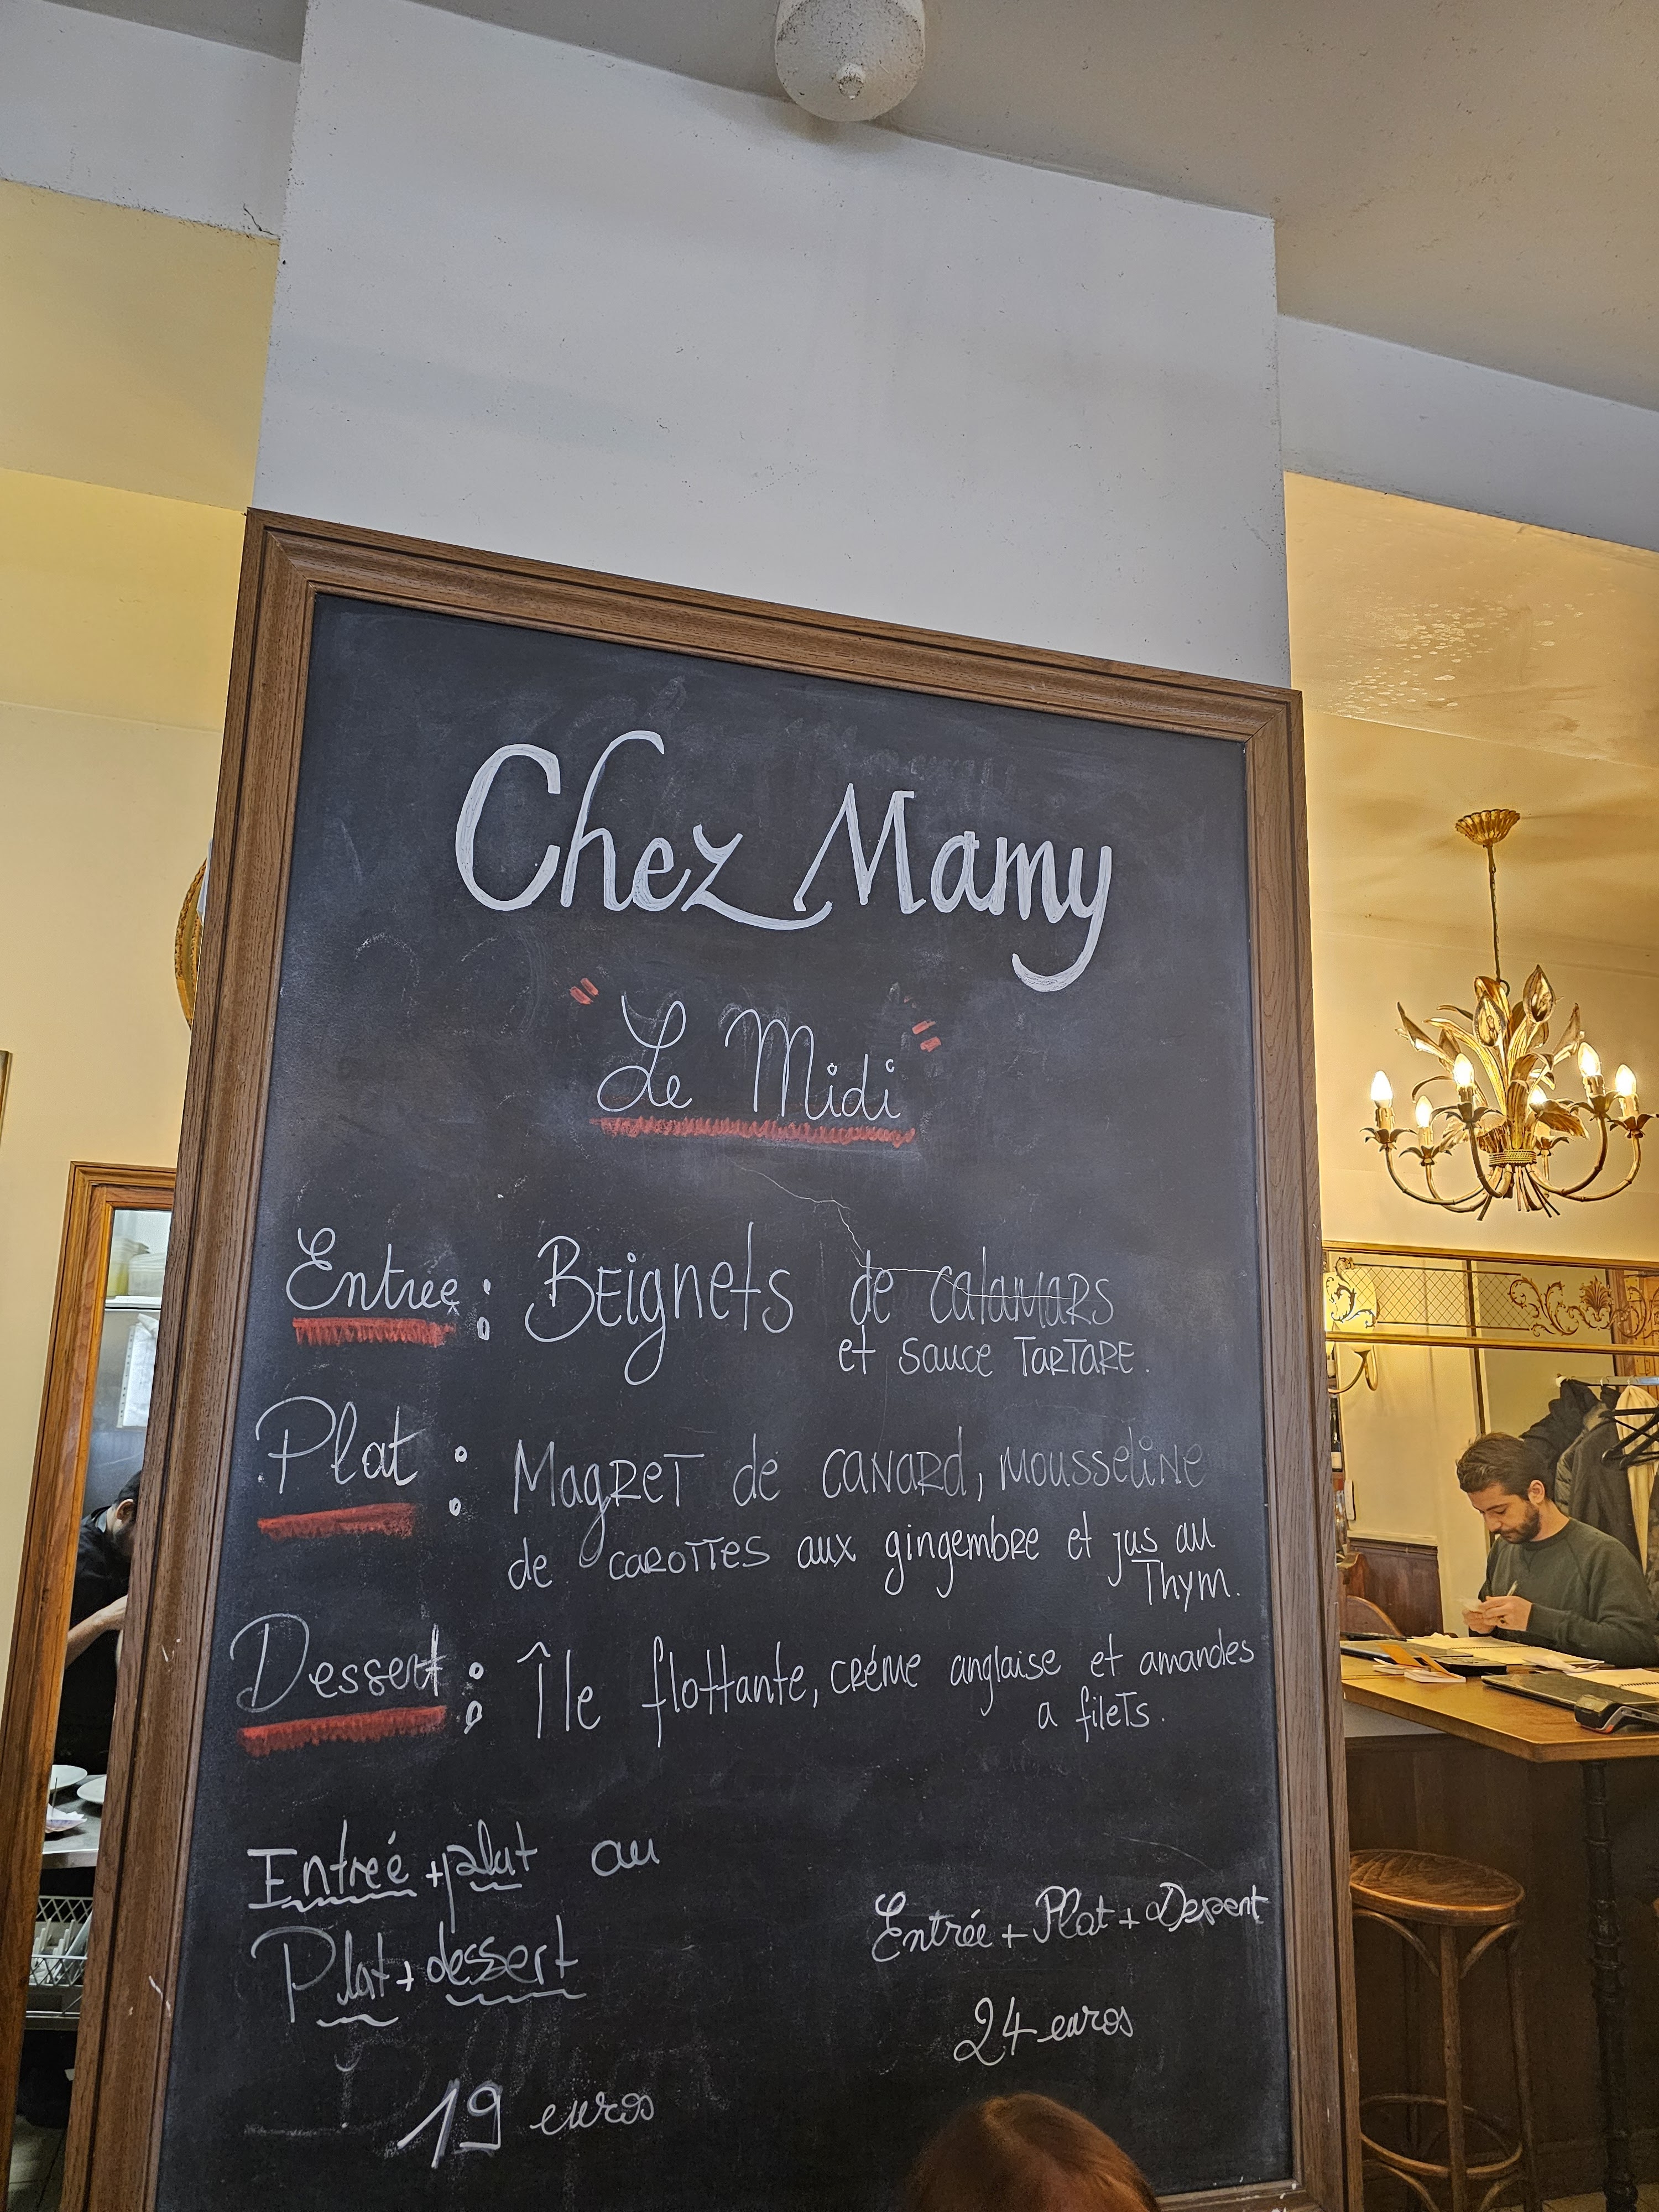 Chez Mamy
"Le Midi"
Entree : Beignets de calamars
et sauce TARTARE.
Plat : MagRET de CANARD, MousseliNe
de CAROTTES aux gingembre et jus au
Thym.
Dessert : Île flottante, créme anglaise et amandes
a fileTs.
Entreé + plat au
Plat + dessert
19 euros
Entrée + Plat + Dessert
24 euros